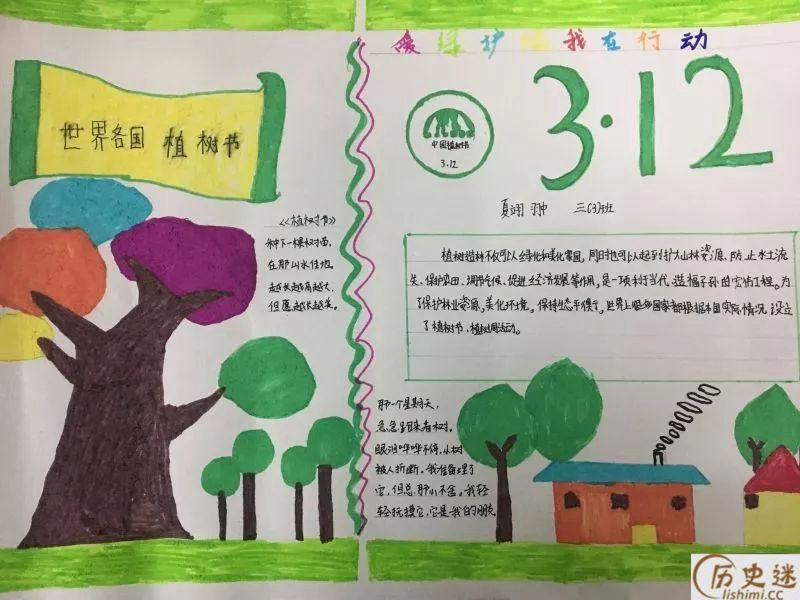 爱绿护绿我在行动
世界各国 植树节
中国植树节
3.12
3·12
夏翊翀 三(3)班
《植树节》
种下一棵树苗,
在那山水佳地。
越长越高越大,
但愿越长越美。
植树造林不仅可以绿化和美化家园,同时也可以起到扩大山林资源、防止水土流
失、保护农田、调节气候、促进经济发展等作用,是一项利于当代、造福子孙的宏伟工程。为
了保护林业资源,美化环境,保持生态平衡,世界上很多国家都根据本国实际情况,设立
了植树节、植树周活动。
那一个星期天,
急急跑来看树。
眼泪哗哗不停,小树
被人折断。我准备埋了
它,但总那小不舍。我轻
轻抚摸它,它是我的朋友
历史迷
lishimi.cc